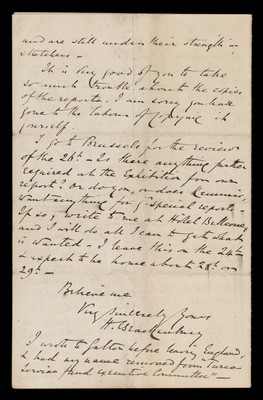 and are still under their strength in
stretchers —
It is very good of you to take
so much trouble about the copies
of the reports. I am sorry you have
gone to the labour of copying it
yourself.
I go to Brussels for the review
of the 26th — Is there anything further
required at the Exhibition for our
report? Or do you, or does
want anything for "special reports" —
If so, write to me at Hôtel Bellevue,
and I will do all I can to get what
is wanted — I leave this on the 24th
& expect to be home about 28th or
29th —
Believe me
Very sincerely yours
H. Brackenbury
I wrote to before leaving England,
& had my name removed from
Service fund executive Committee" —